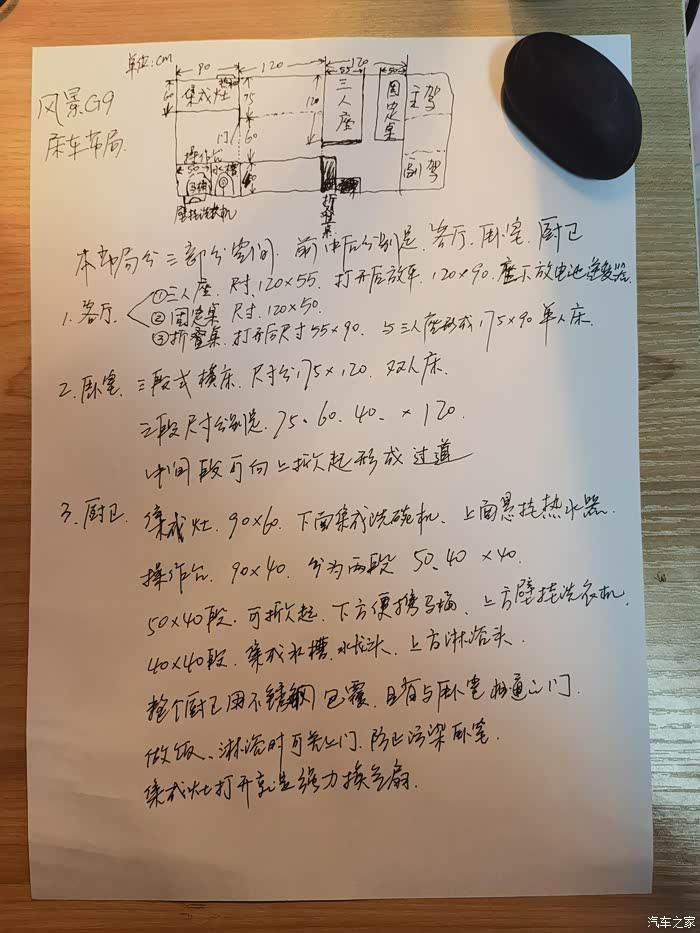 单位:CM
90 120 120
风景G9
床车布局
集成灶
60
75
120
55
50
三人座
固定桌
主驾
门
60
操作台
50
水槽
马桶
40
副驾
折叠桌
壁挂洗衣机
本布局分三部分空间,前中后分别是,客厅、卧室、厨卫
1、客厅
①三人座 尺寸,120×55,打开后放平,120×90,座下放电池逆变器
②固定桌 尺寸,120×50.
③折叠桌,打开后尺寸55×90,与三人座形成175×90单人床.
2、卧室、三段式横床、尺寸分175×120、双人床、
三段尺寸分别是、75、60、40、×120.
中间段可向上折起形成过道
3、厨卫、集成灶、90×60、下面集成洗碗机、上面悬挂热水器
操作台、90×40、分为两段 50、40 ×40.
50×40段、可折起、下方便携马桶、上方壁挂洗衣机,
40×40段、集成水槽、水龙头、上方淋浴头、
整个厨卫用不锈钢包覆,且有与卧室相通的门.
做饭、淋浴时可关上门、防止污染卧室.
集成灶打开就是强力换气扇.
汽车之家